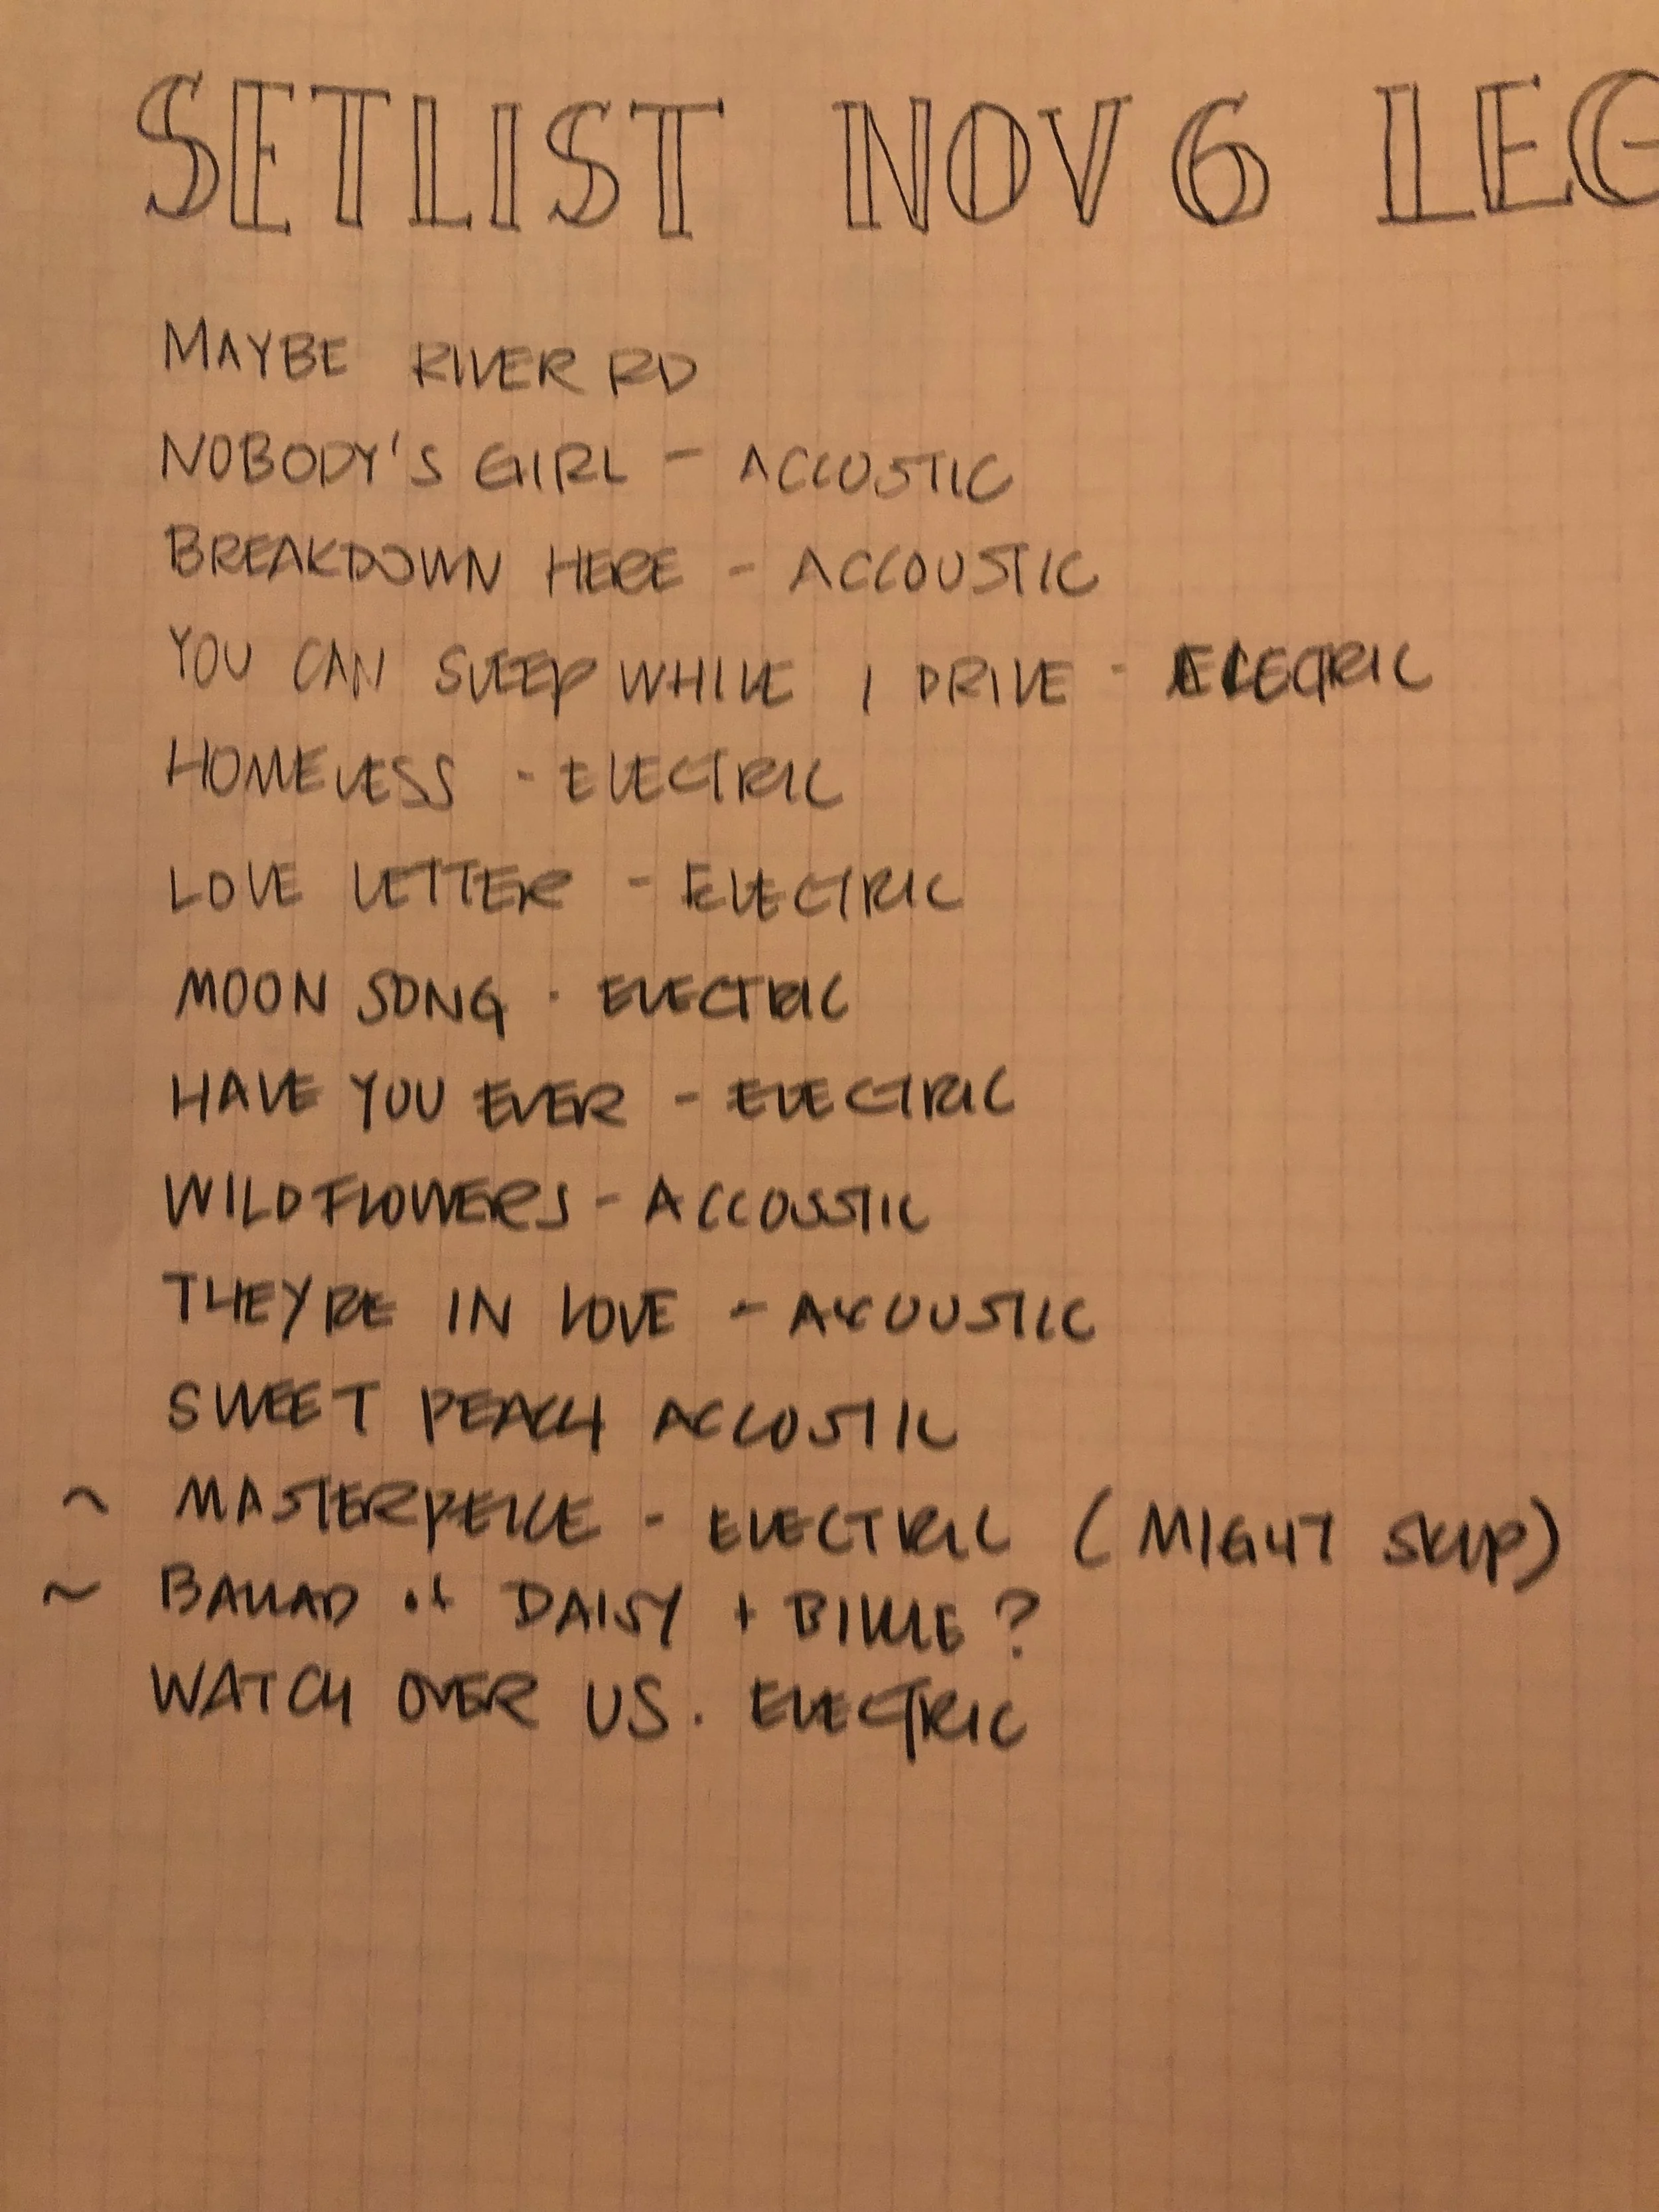 SETLIST NOV 6 LEG
MAYBE RIVER RD
NOBODY'S GIRL - ACCUSTIC
BREAKDOWN HERE - ACCOUSTIC
YOU CAN SLEEP WHILE I DRIVE - ELECTRIC
HOMELESS - ELECTRIC
LOVE LETTER - ELECTRIC
MOON SONG - ELECTRIC
HAVE YOU EVER - ELECTRIC
WILDFLOWERS - ACCOUSTIC
THEYRE IN LOVE - ACCOUSTIC
SWEET PEACH ACCOSTIC
~ MASTERPEICE - ELECTRIC (MIGHT SKIP)
~ BALLAD of DAISY + BILLIE ?
WATCH OVER US. ELECTRIC